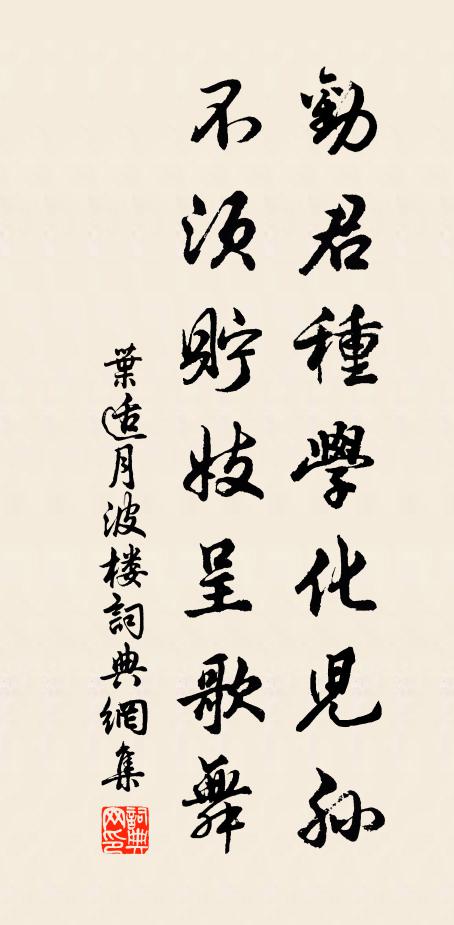 勸君種學化兒孫
不須貯妓呈歌舞
葉適月波楼詞典網集
詞典网印